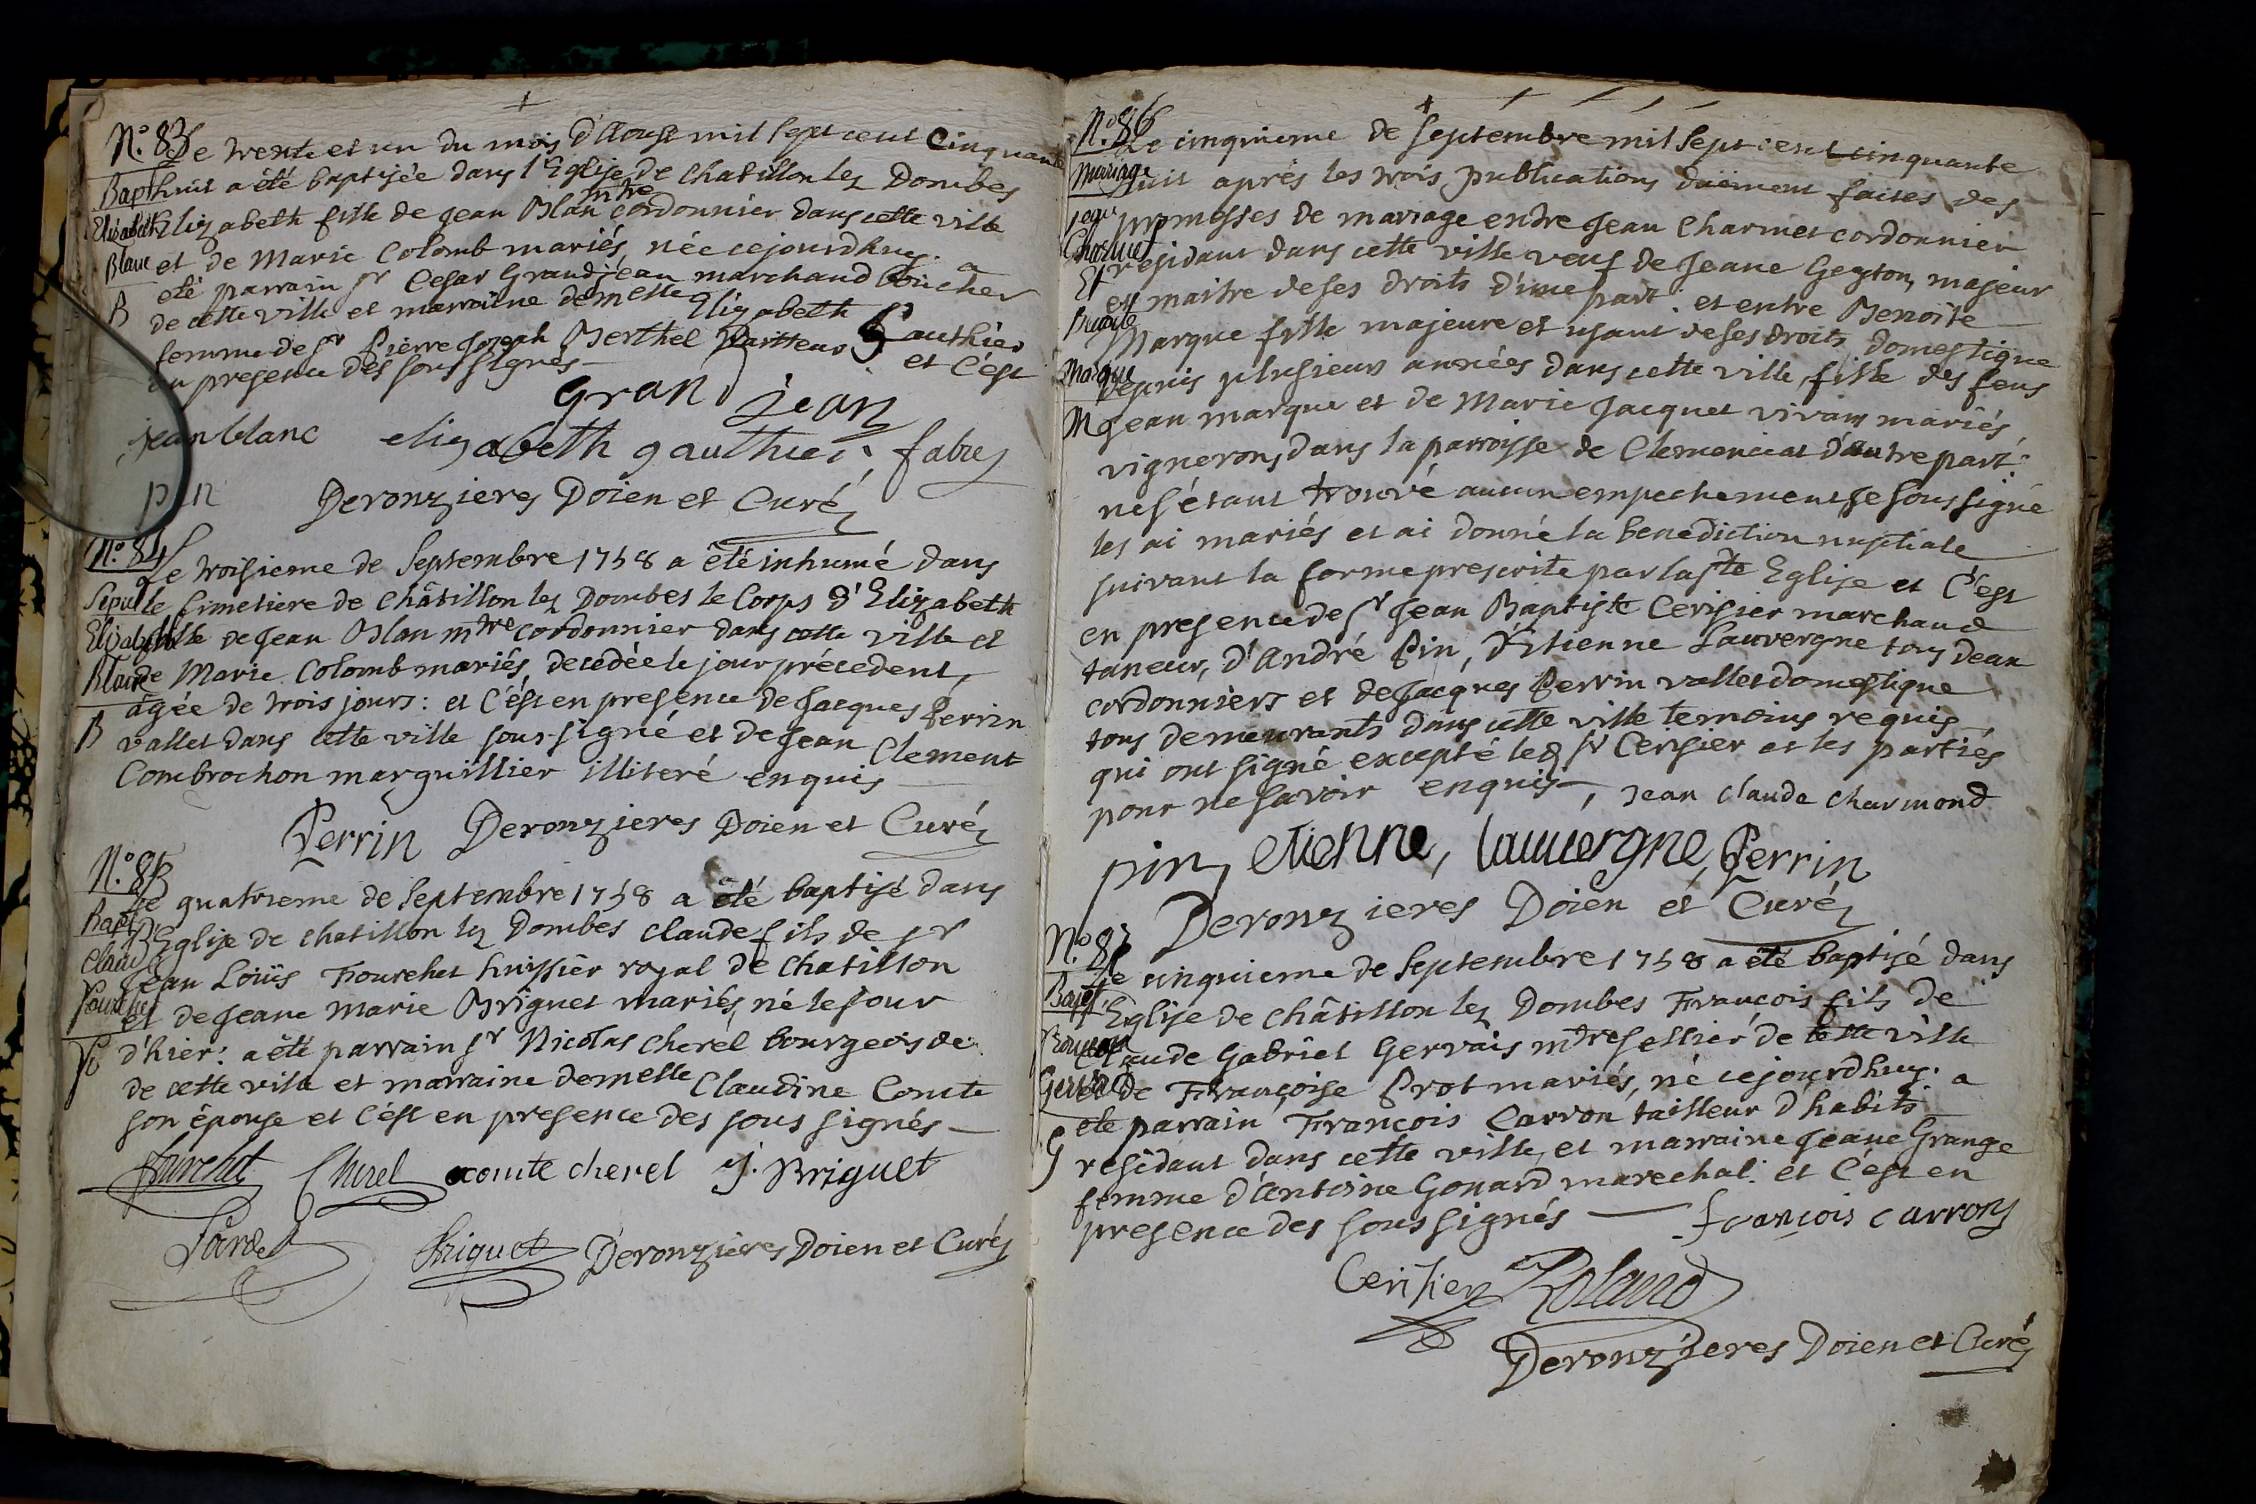 N.º 83 Le trente et un du mois d'Aoust mil sept cent Cinquante
Bap.t huit a été baptisée dans l'Eglise de Chatillon lez Dombes
Elizabeth Elizabeth fille de Jean Blan mtre cordonnier dans cette ville
Blanc et de Marie Colomb mariés née cejourdhuy. a
B été parrain sr Cesar Grandjean marchand boucher
de cette ville et marraine demelle Elizabeth Gauthier
femme de sr Pierre Joseph Berthel et C'est
en presence des sous signés
gran jean
jean blanc elizabeth gauthier fabrej
pin Deronzieres Doien et Curé
N.º 84 Le troisieme de Septembre 1758 a été inhumé dans
Sepul le Cimetiere de Châtillon lez Dombes le Corps d'Elizabeth
Elizabeth fille de Jean Blan mtre cordonnier dans cette ville et
Blanc de Marie Colomb mariés, decédée le jour précedent,
âgée de trois jours: et C'ést en presence de Jacques Perrin
B vallet dans cette ville sous-signé et de Jean Clement
Combrochon marguillier illiteré enquis
Perrin Deronzieres Doien et Curé
N.º 85 Le quatrieme de Septembre 1758 a été baptisé dans
Bapt l'Eglise de Chatillon lez Dombes Claude fils de sr
Claud Jean Loüis Fourchet huissier royal de Chatillon
Fourchet et de Jeane Marie Briguet mariés, né le jour
F d'hier: a été parrain sr Nicolas Cherel bourgeois de
de cette ville et marraine demelle Claudine Comte
son épouse et C'ést en presence des sous signés
fourchet Cherel comte cherel j. Briguet
Briguet Deronzieres Doien et Curé
N.º 86 Le cinquieme de Septembre mil Sept cent cinquante
Mariage huit aprés les trois publications düement faites des
promesses de mariage entre Jean Charmet cordonnier
Charmet residant dans cette ville veuf de Jeane Geyton, majeur
Et et maitre de ses droits d'une part: et entre Benoite
Benoite Marque fille majeure et usant de ses droits domestique
Marque depuis plusieurs années dans cette ville, fille des feus
M Jean Marque et de Marie Jacquet vivans mariés,
vignerons dans la parroisse de Clemenciat d'autre part:
ne s'étant trouvé aucun empechement Je sous signé
les ai mariés et ai donné la benediction nuptiale
suivant la forme prescrite par la ste Eglise et C'est
en presence de sr Jean Baptiste Cerisier marchand
taneur, d'André Pin, d'Etienne Lauvergne tous deux
cordonniers et de Jacques Perrin vallet domestique
tous demeurants dans cette ville temoins requis
qui ont signé excepté led sr Cerisier et les partiés
pour ne savoir enquis, Jean Claude Charmond
pin, etienne, lauuergne, Perrin
Deronzieres Doien et Curé
N.º 87 Le cinquieme de Septembre 1758 a été baptisé dans
Bapt l'Eglise de Châtillon lez Dombes François fils de
Claude Gabriel Gervais mtre sellier de cette ville
Gervais et de Françoise Prost mariés, né cejourdhuy. a
été parrain François Carron tailleur d'habits
G residant dans cette ville, et marraine Jeane Grange
femme d'Antoine Gonard marechal: et C'est en
presence des sous signés françois carron
Cerisier Roland
Deronzieres Doien et Curé